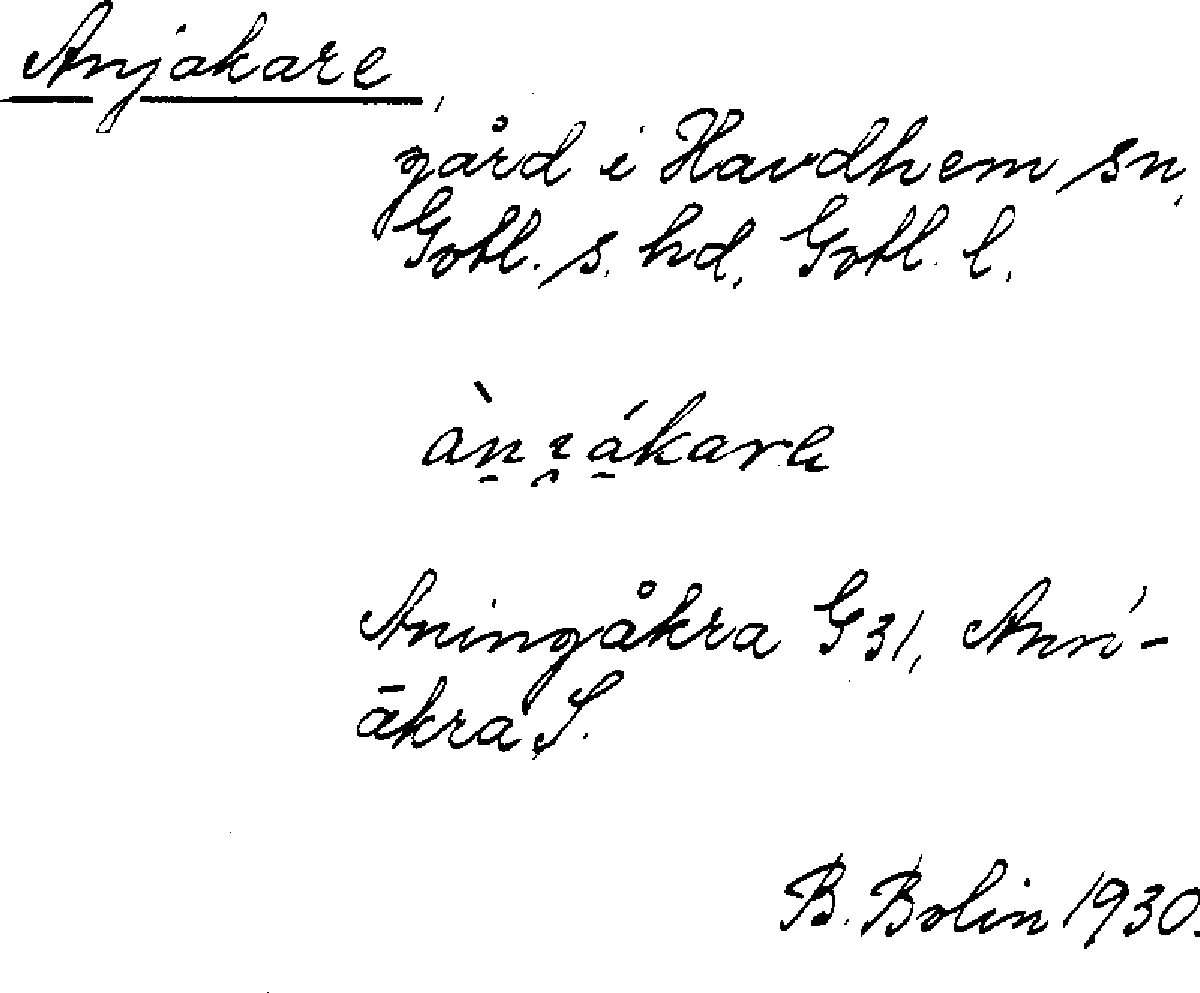 Anjakare,
gård i Havdhem sn,
Gotl. s. hd, Gotl. l.
Aningåkra G31, Anni-
åkra S.
B. Bolin 1930.